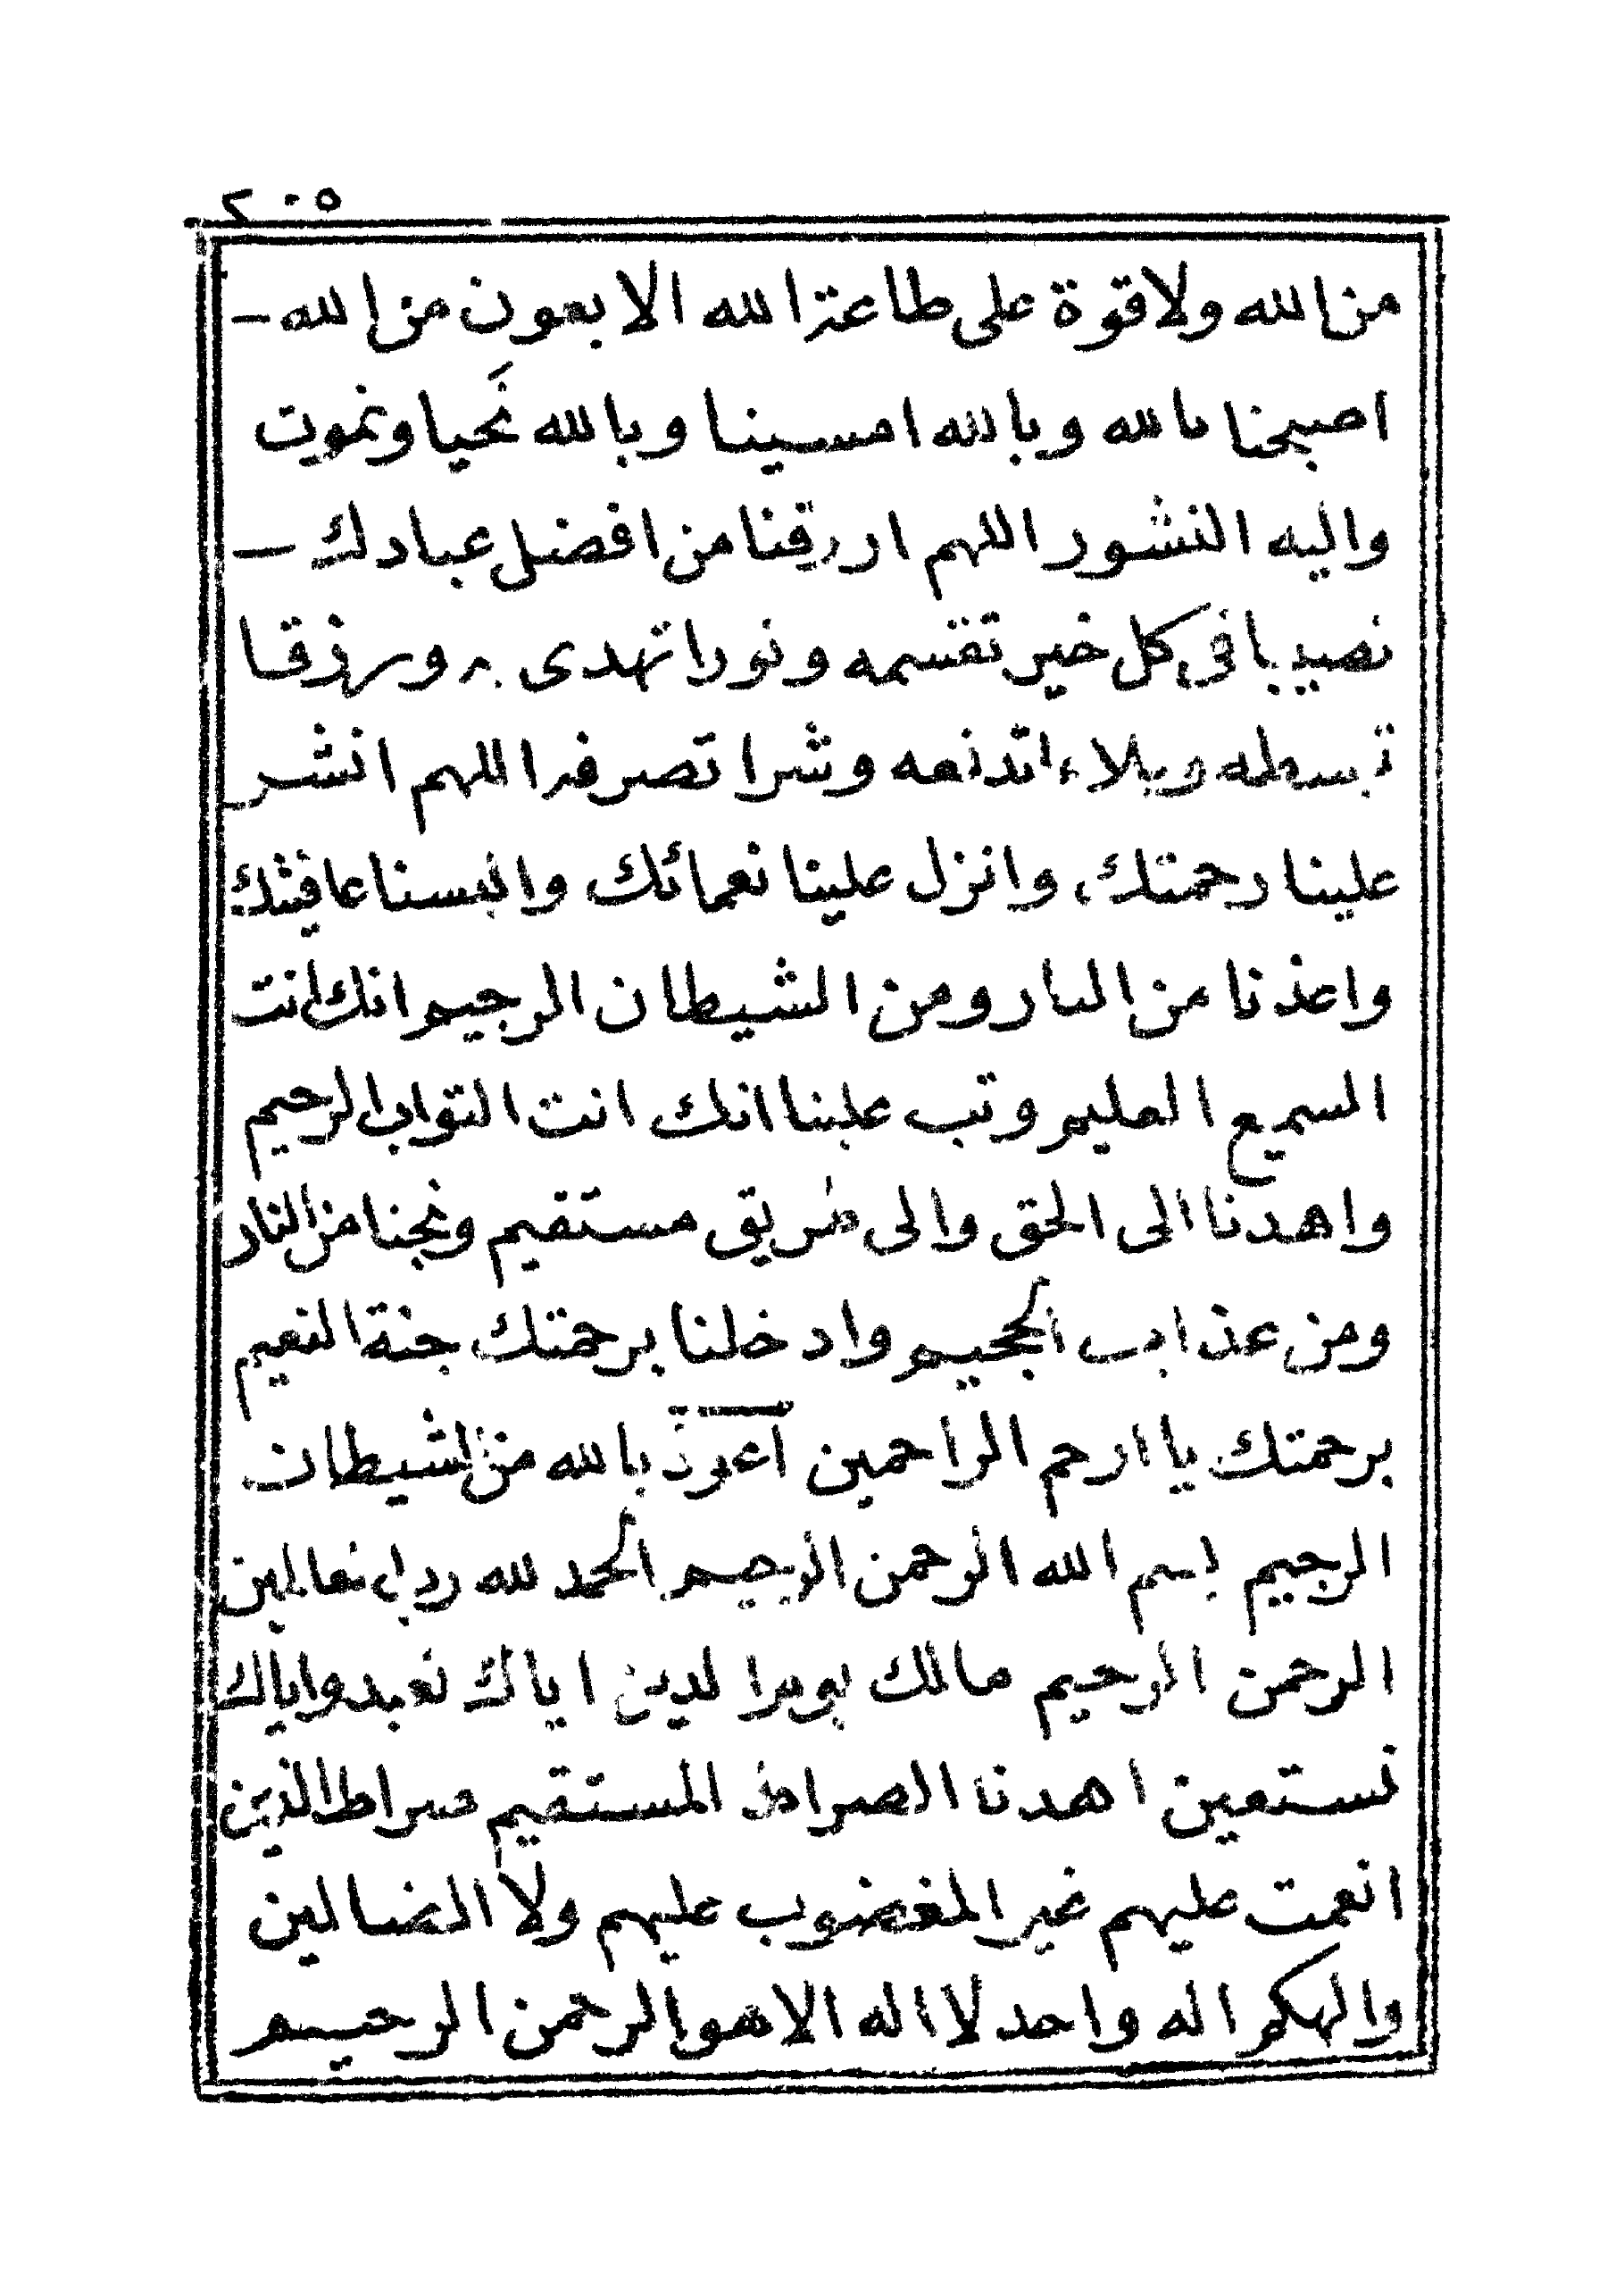 ٢٠٥
من الله ولا قوة على طاعة الله الا بعون من الله –
اصبحنا بالله وبالله امسينا وبالله نَحيا ونموت
واليه النشور اللهم ارزقنا من افضل عبادك –
نصيبا فى كل خير تقسمه ونورا تهدى به ورزقا
تبسطه وبلاء اتدفعه وشرا تصرفه اللهم انشر
علينا رحمتك، وانزل علينا نعمائك والبسنا عافيتك
واعذنا من النار ومن الشيطان الرجيم انك انت
السميع العليم وتب علينا انك انت التواب الرحيم
واهدنا الى الحق والى طريق مستقيم ونجنا من النار
ومن عذاب الجحيم وادخلنا برحمتك جنة النعيم
برحمتك يا ارحم الراحمين اعوذ بالله من الشيطان
الرجيم بسم الله الرحمن الرحيم الحمد لله رب العالمين
الرحمن الرحيم مالك يوم الدين اياك نعبد واياك
نستعين اهدنا الصراط المستقيم صراط الذين
انعمت عليهم غير المغضوب عليهم ولا الضالين
والهكم اله واحد لا اله الا هو الرحمن الرحيم